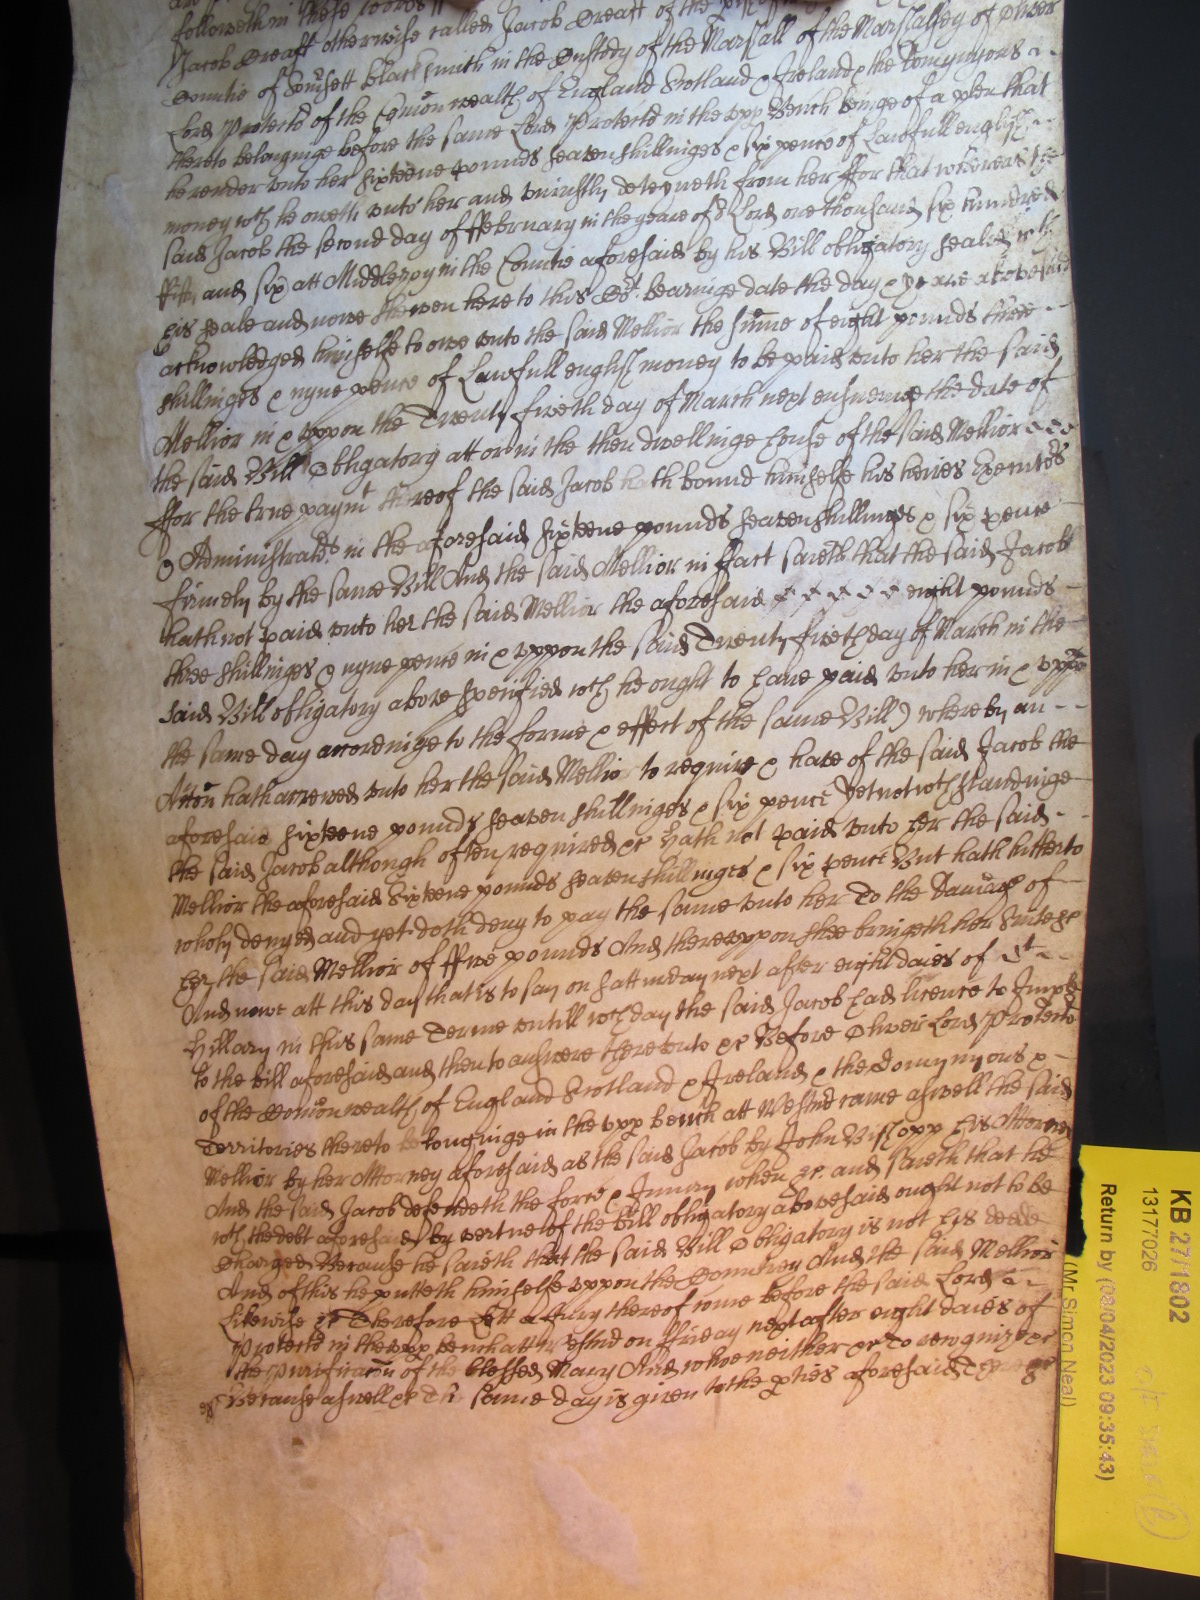 followeth in these words
Jacob Greatt otherwise called Jacob Greatt of the
Countie of Somsett blacksmith in the Custody of the Marshall of the Marshalsey of Oliver
Lord Protector of the Comon wealth of England Scotland & Ireland & the Domynions
thereto belonginge before the same Lord Protector in the upp Bench beinge of a plea that
he render unto her sixteene pounds seaven shillinges & six pence of Lawfull english
money wch he oweth unto her and uniustly deteyneth from her ffor that whereas the
said Jacob the second day of ffebruary in the yeare of or Lord one thousand six hundred
ffifty and six att Middlezoy in the Countie aforesaid by his Bill obligatory sealed wth
his seale and nowe shewen here to this Cort bearinge date the day & yeare abovesaid
acknowledged himselfe to owe unto the said Mellior the sume of eight pounds three
shillinges & nyne pence of Lawfull english money to be paid unto her the said
Mellior in & uppon the Twenty fiveth day of March next ensueinge the date of
the said Bill Obligatory att or in the then dwellinge house of the said Mellior
ffor the true paymt thereof the said Jacob hath bound himselfe his heires Executors
& Administrators in the aforesaid sixteene pounds seaven shillings & six pence
firmely by the same Bill And the said Mellior in ffact saieth that the said Jacob
hath not paid unto her the said Mellior the aforesaid eight pounds
three shillinges & nyne pence in & uppon the said Twenty fiveth day of March in the
said Bill obligatory above specified wch he ought to have paid unto her in & uppon
the same day accordinge to the forme & effect of the same Bill) whereby an
Accon hath accrewed unto her the said Mellior to require & have of the said Jacob the
aforesaid sixteene pounds seaven shillinges & six pence Yet notwthstandinge
the said Jacob although often required &c hath not paid unto her the said
Mellior the aforesaid Sixteene pounds seaven shillinges & six pence But hath hitherto
wholy denyed and yet doth deny to pay the same unto her To the damage of
her the said Mellior of ffive pounds And thereuppon shee bringeth her Suite &c
And nowe att this day that is to say on satturday next after eight daies of St
Hillary in this same Terme untill wch day the said Jacob had licence to Imple
to the bill aforesaid and then to answere thereunto &c Before Oliver Lord Protector
of the Comon wealth of England Scotland & Ireland & the Domynyons &
Territories thereto belonginge in the upp bench att Westmr came aswell the said
Mellior by her Attorney aforesaid as the said Jacob by John Bishopp his Attorney
And the said Jacob defendeth the force & Iniury when &c. and saieth that he
wth the debt aforesaid by vertue of the bill obligatory abovesaid ought not to be
Charged Because he saieth that the said Bill Obligatory is not his deede
And of this he putteth himselfe uppon the Countrey And the said Mellior
likewise &c Therefore Lett a Jury thereof come before the said Lord
Protector in the upp bench att Westmr on ffriday next after eight daies of
the Purificacon of the blessed Mary And whoe neither &c To recognize &c
Because aswell &c The same day is given to the pties aforesaid There &c
KB 27/1802
13177026
Return by (08/04/2023 09:35:43)
(Mr Simon Neal)